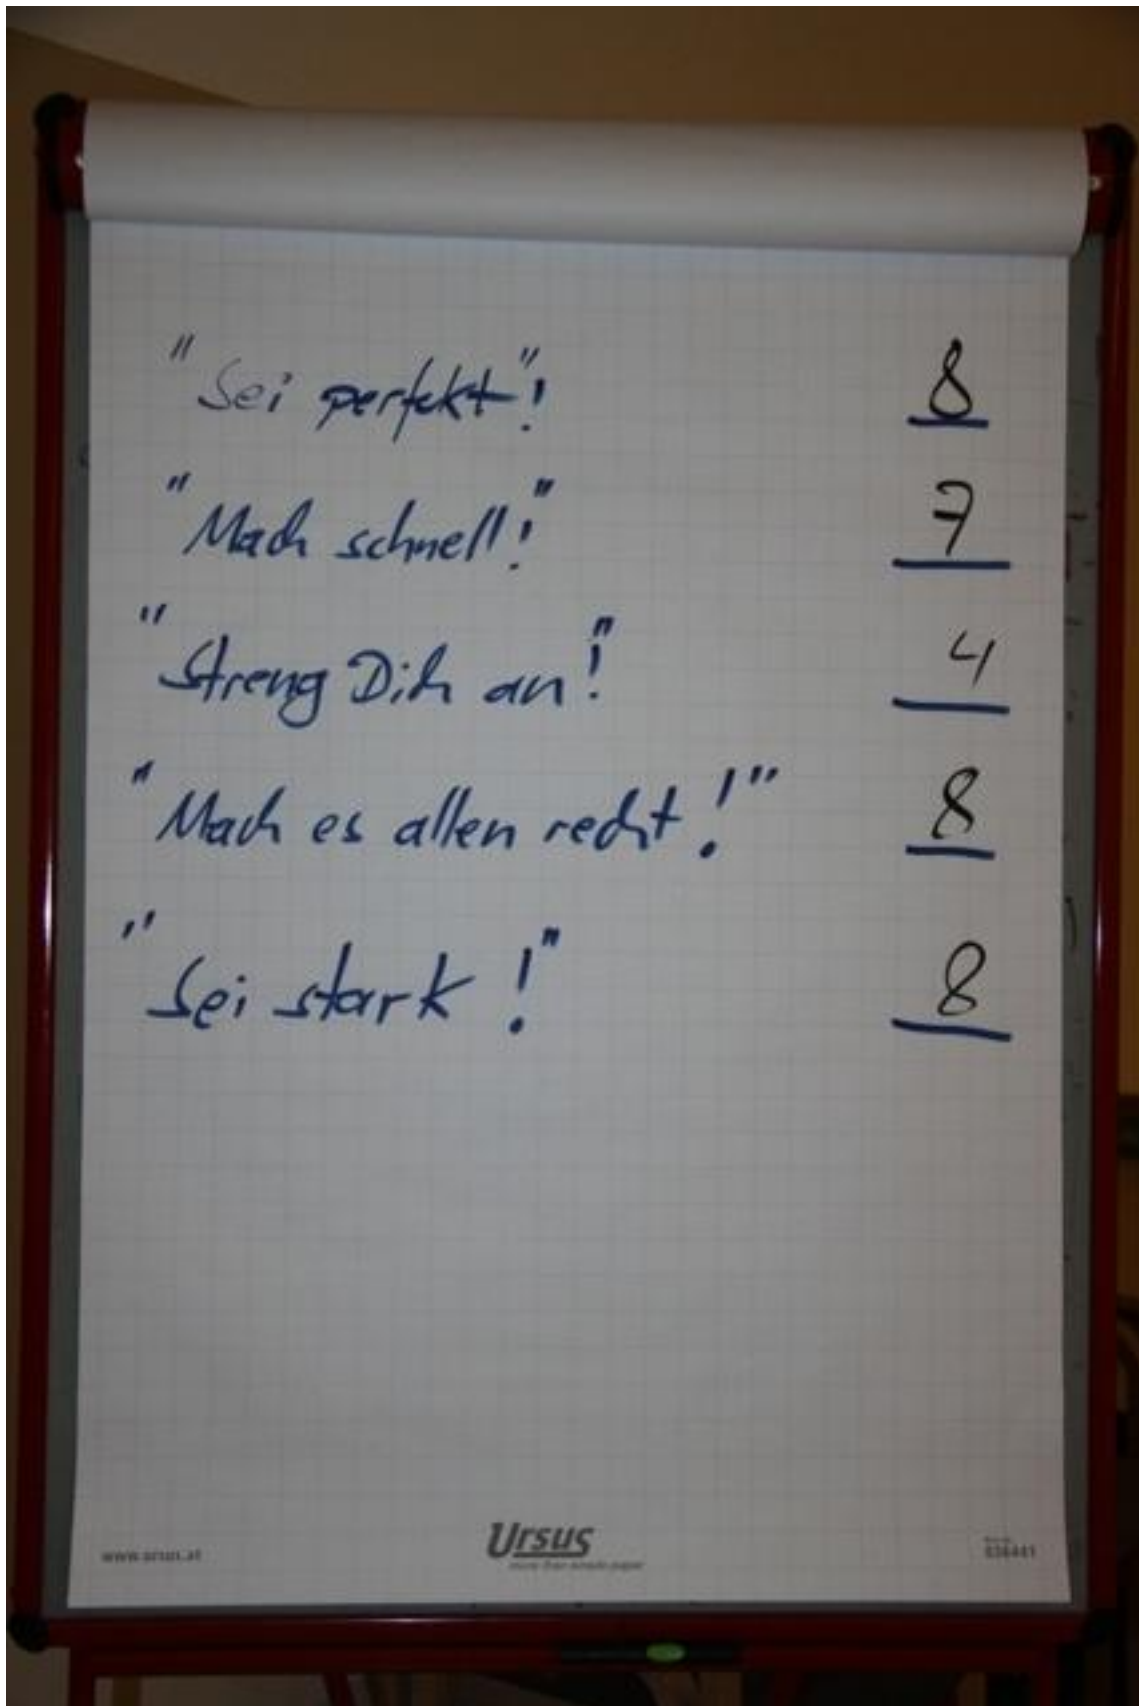 "Sei perfekt"! 8
"Mach schnell!" 7
"Streng Dich an!" 4
"Mach es allen recht!" 8
"Sei stark!" 8
www.ursus.at Ursus
more than simple paper